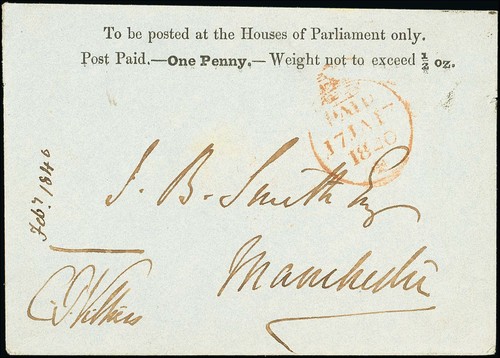 To be posted at the Houses of Parliament only.
Post Paid.—One Penny.—Weight not to exceed ½ oz.
PAID
17 JA 17
1840
J. B. Smith Esq
Manchester
Feby 1840